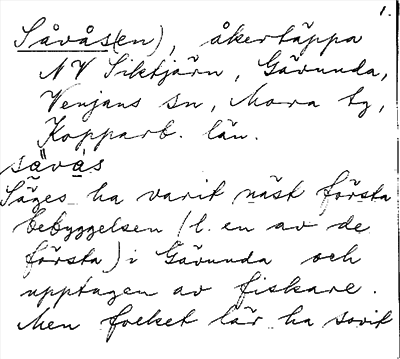 1.
Såvås(en), åkertäppa
NV Siktjärn, Gävunda,
Venjans sn, Mora tg,
Kopparb. län.
sä̀vàs
Säges ha varit näst första
bebyggelsen (l. en av de
första) i Gävunda och
upptagen av fiskare.
Men folket lär ha sovit